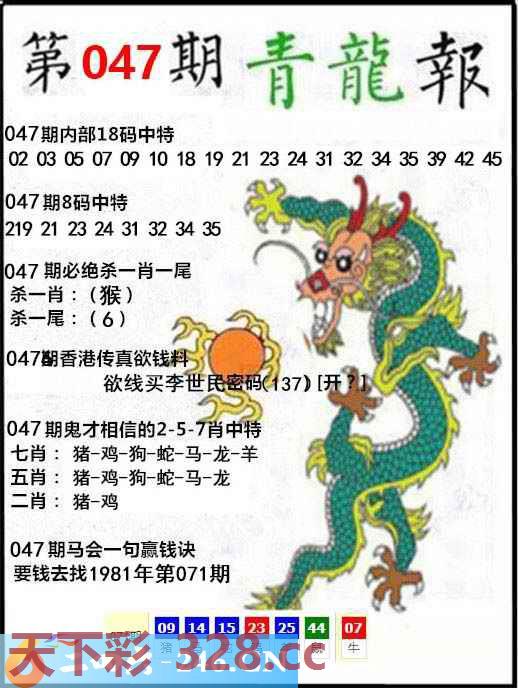 第047期青龍報
047期内部18码中特
02 03 05 07 09 10 18 19 21 23 24 31 32 34 35 39 42 45
047期8码中特
219 21 23 24 31 32 34 35
047期必绝杀一肖一尾
杀一肖：（猴）
杀一尾：（6）
047期香港传真欲钱料
欲线买李世民密码(137)[开？]
047期鬼才相信的2-5-7肖中特
七肖：猪-鸡-狗-蛇-马-龙-羊
五肖：猪-鸡-狗-蛇-马-龙
二肖：猪-鸡
047期马会一句赢钱诀
要钱去找1981年第071期
09 14 15 23 25 44 07
猪 鼠 牛
天下彩-328.cc